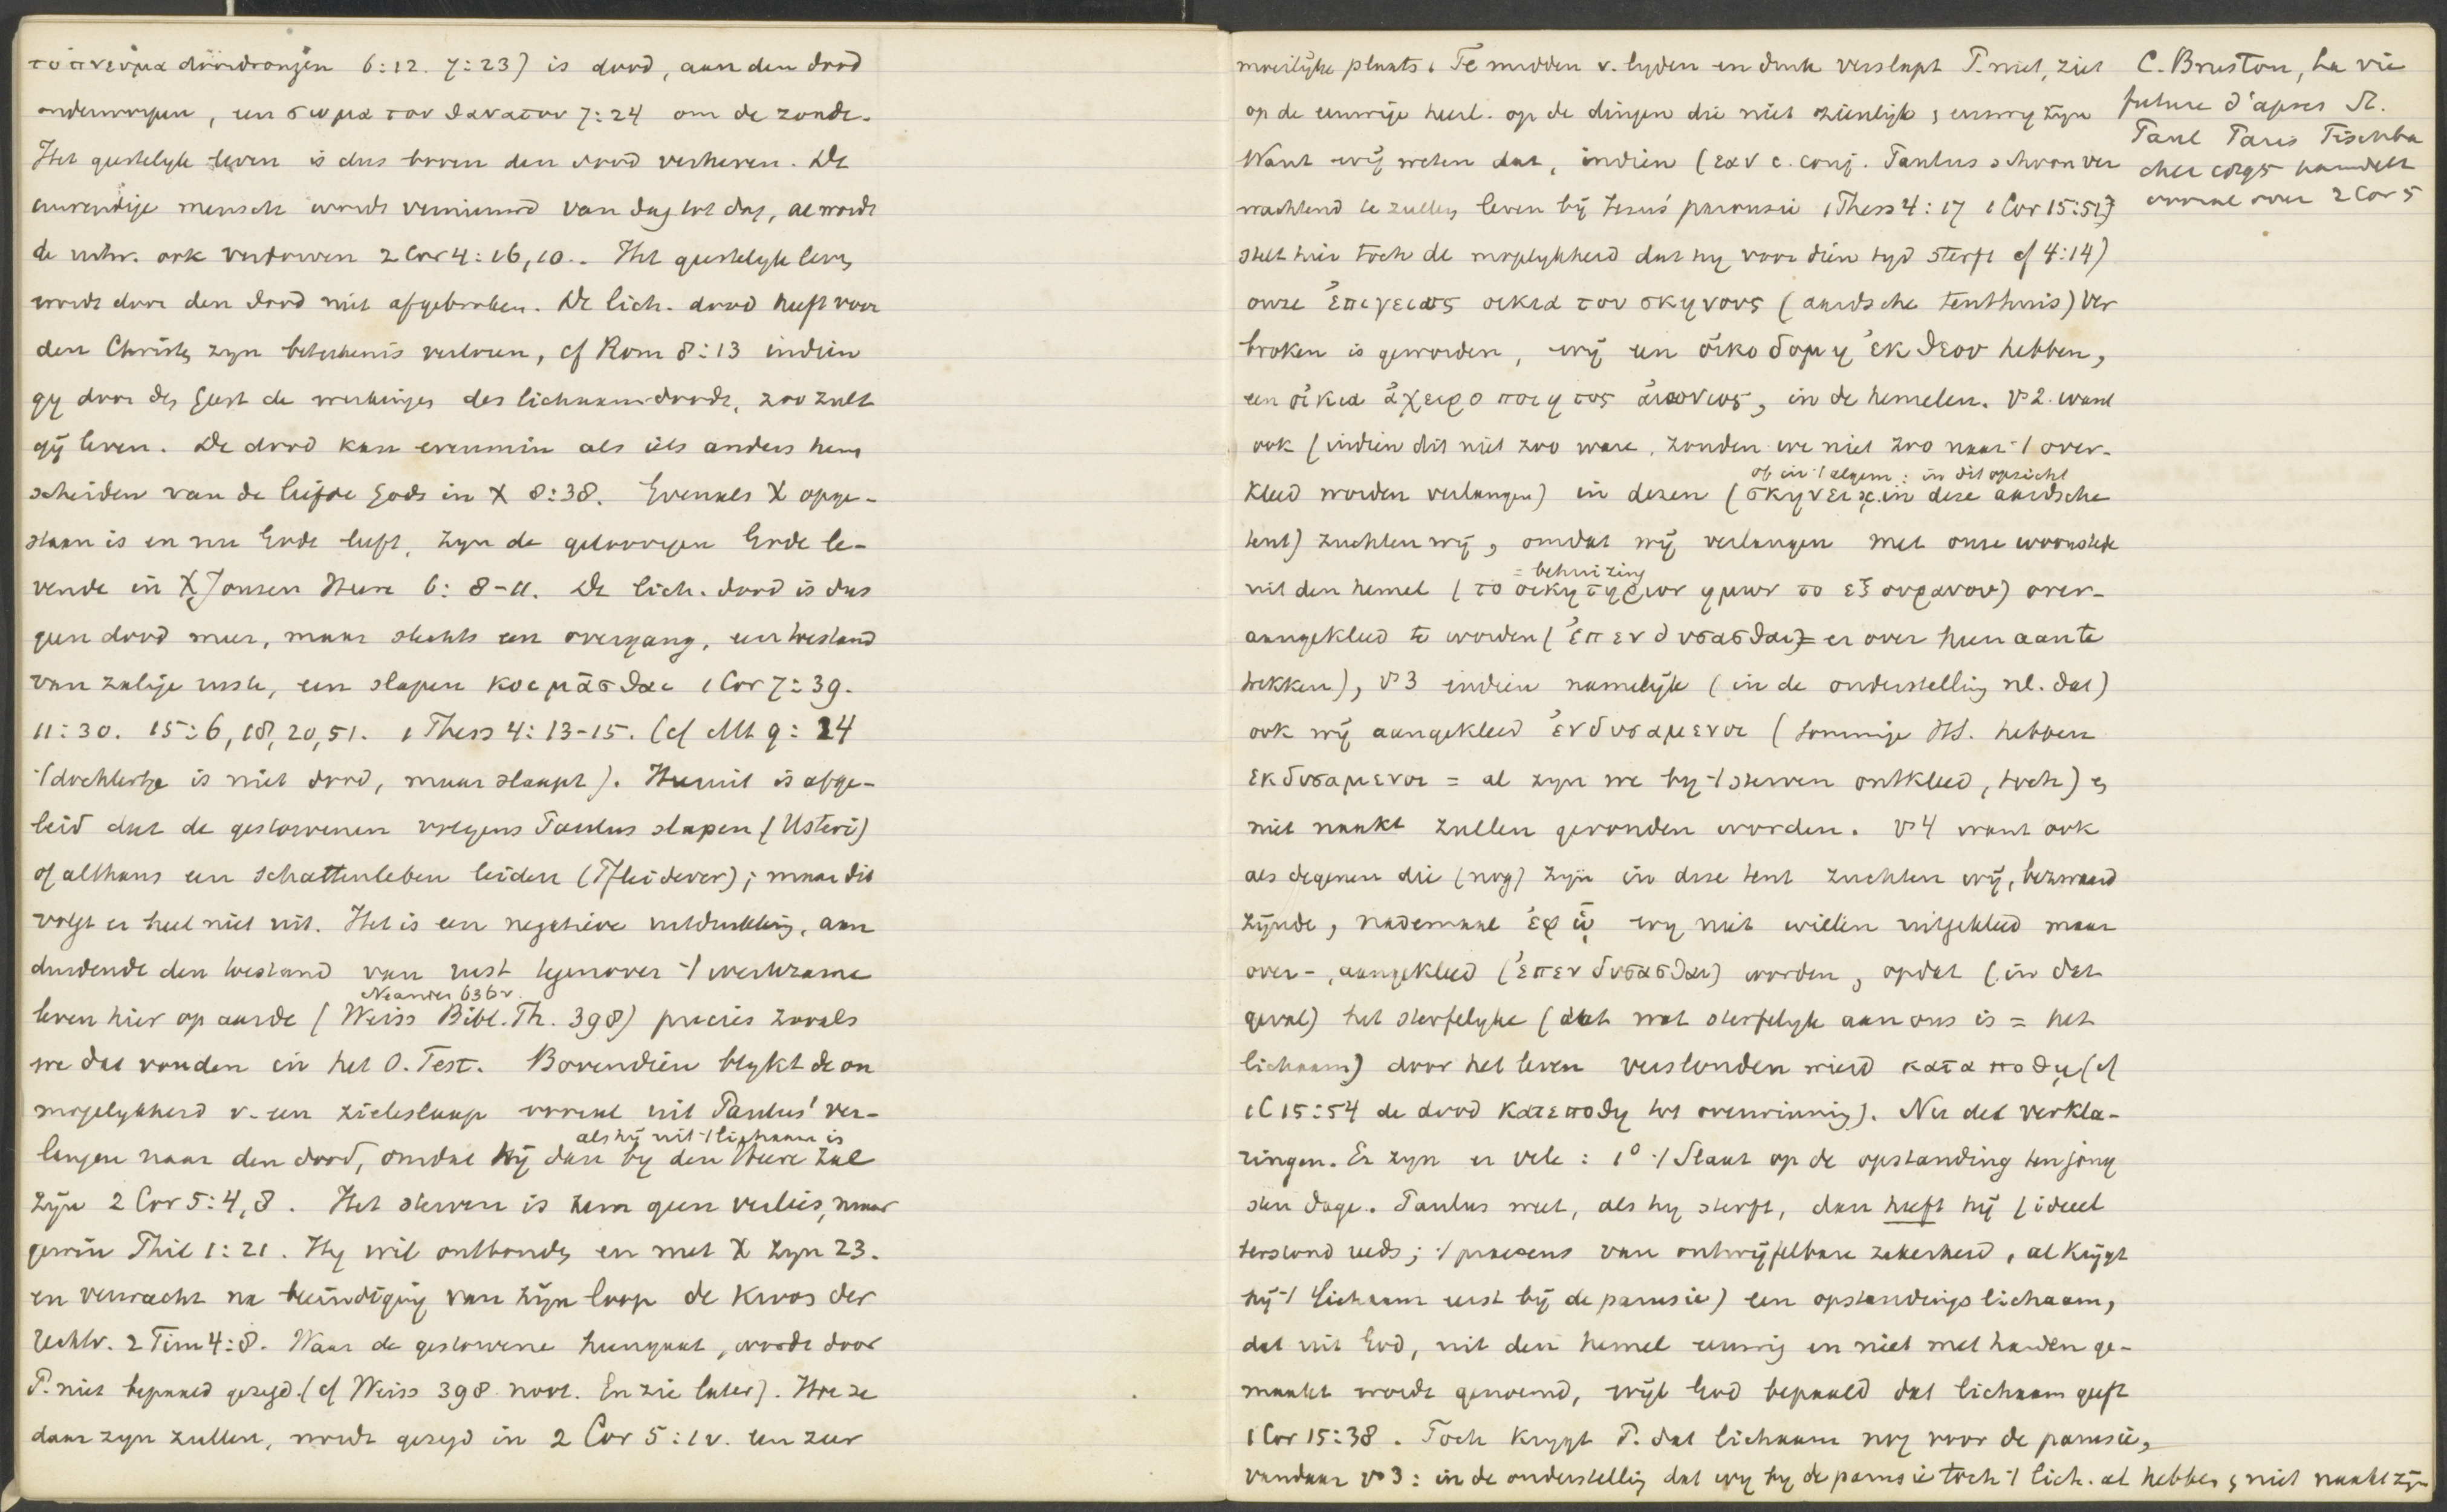 το πνευμα doordrongen 6:12. 7:23) is dood, aan den dood
onderworpen, een σωμα του θανατου 7:24 om de zonde.
Het geestelyk leven is dus boven den dood verheven. De
inwendige mensch wordt vernieuwd van dag tot dag, al wordt
de uitw. ook verdorven 2 Cor 4:16, 10.. Het geestelyk leven
wordt door den dood niet afgebroken. De lich. dood heeft voor
den Christen zyn beteekenis verloren, cf Rom 8:13 indien
gy door den Geest de werkingen des lichaams doodt, zoo zult
gij leven. De dood kan evenmin als iets anders hem
scheiden van de liefde Gods in X 8:38. Evenals X opge-
staan is en nu Gode leeft, zyn de geloovigen Gode le-
vende in X J onzen Heere 6:8-11. De lich. dood is dus
geen dood meer, maar slechts een overgang, een toestand
van zalige rust, een slapen κοιμᾶσθαι 1 Cor 7:39.
11:30. 15:6, 18, 20, 51. 1 Thess 4:13-15. (cf Mt 9:24
't dochtertje is niet dood, maar slaapt). Hieruit is afge-
leid dat de gestorvenen volgens Paulus slapen (Usteri)
of althans een Schattenleben leiden (Pfleiderer); maar dit
volgt er heel niet uit. Het is een negatieve uitdrukking, aan
duidende den toestand van rust tegenover 't werkzame
Neander 636v.
leven hier op aarde (Weiss Bibl. Th. 398) precies zooals
we dat vonden in het O. Test. Bovendien blykt de on
mogelykheid v. een zieleslaap vooral uit Paulus' ver-
als hij uit 't lichaam is
langen naar den dood, omdat hij dan by den Heere zal
zijn 2 Cor 5:4, 8. Het sterven is hem geen verlies, maar
gewin Phil 1:21. Hy wil ontbonden en met X zyn 23.
en verwacht na beeindiging van zijn loop de kroon der
rechtv. 2 Tim 4:8. Waar de gestorvene heengaat, wordt door
P. niet bepaald gezegd. (cf Weiss 398 noot. En zie later). Hoe ze
daar zyn zullen, wordt gezegd in 2 Cor 5:1v. een zeer
moeilijke plaats. Te midden v. lyden en druk verslapt P. niet, ziet
op de eeuwige heerl. op de dingen die niet zienlijk, eeuwig zyn
Want wij weten dat, indien (εαν c. conj. Paulus schoon ver
wachtend te zullen leven bij Jezus' parousie 1 Thess 4:17 1 Cor 15:51)
stelt hier toch de mogelykheid dat hy voor dien tyd sterft cf 4:14)
onze ἐπιγειος οικια του σκηνους (aardsche tenthuis) ver
broken is geworden, wij een οἰκοδομη ἐκ θεου hebben,
een οἰκια ἀχειροποιητος αἰωνιος, in de hemelen. vs 2. want
ook (indien dit niet zoo ware, zouden we niet zoo naar 't over-
of in 't algem: in dit opzicht
kleed worden verlangen) in dezen (σκηνει in deze aardsche
tent) zuchten wij, omdat wij verlangen met onze woonstede
= behuizing
uit den hemel (το οικητηριον ημων το εξ ουρανου) over-
aangekleed te worden (ἐπενδυσασθαι = er over heen aan te
trekken), vs 3 indien namelijk (in de onderstelling nl. dat)
ook wij aangekleed ἐνδυσαμενοι (sommige HS. hebben
εκδυσαμενοι = al zyn we by 't sterven ontkleed, toch) en
niet naakt zullen gevonden worden. vs 4 want ook
als degenen die (nog) zyn in deze tent zuchten wij, bezwaard
zijnde, nademaal ἐφ ᾧ wy niet willen uitgekleed maar
over-, aangekleed (ἐπενδυσασθαι) worden, opdat (in dat
geval) het sterfelyke (dat wat sterfelyk aan ons is = het
lichaam) door het leven verslonden wierd καταποθῃ (cf
1 C 15:54 de dood κατεποθη tot overwinning). Nu de verkla-
ringen. Er zyn er vele: 1° 't Slaat op de opstanding ten jong
sten dage. Paulus weet, als hy sterft, dan heeft hij (ideeel
terstond reeds; 't praesens van ontwijfelbare zekerheid, al krijgt
hij 't lichaam eerst bij de parusie) een opstandingslichaam,
dat uit God, uit den hemel eeuwig en niet met handen ge-
maakt wordt genoemd, wijl God bepaald dat lichaam geeft
1 Cor 15:38. Toch krygt P. dat lichaam nog voor de parusie,
vandaar vs 3: in de onderstelling dat wy by de parusie toch 't lich. al hebben, niet naakt zijn
C. Bruston, La vie
future d'apres St.
Paul Paris Fischba
cher 1895 handelt
vooral over 2 Cor 5